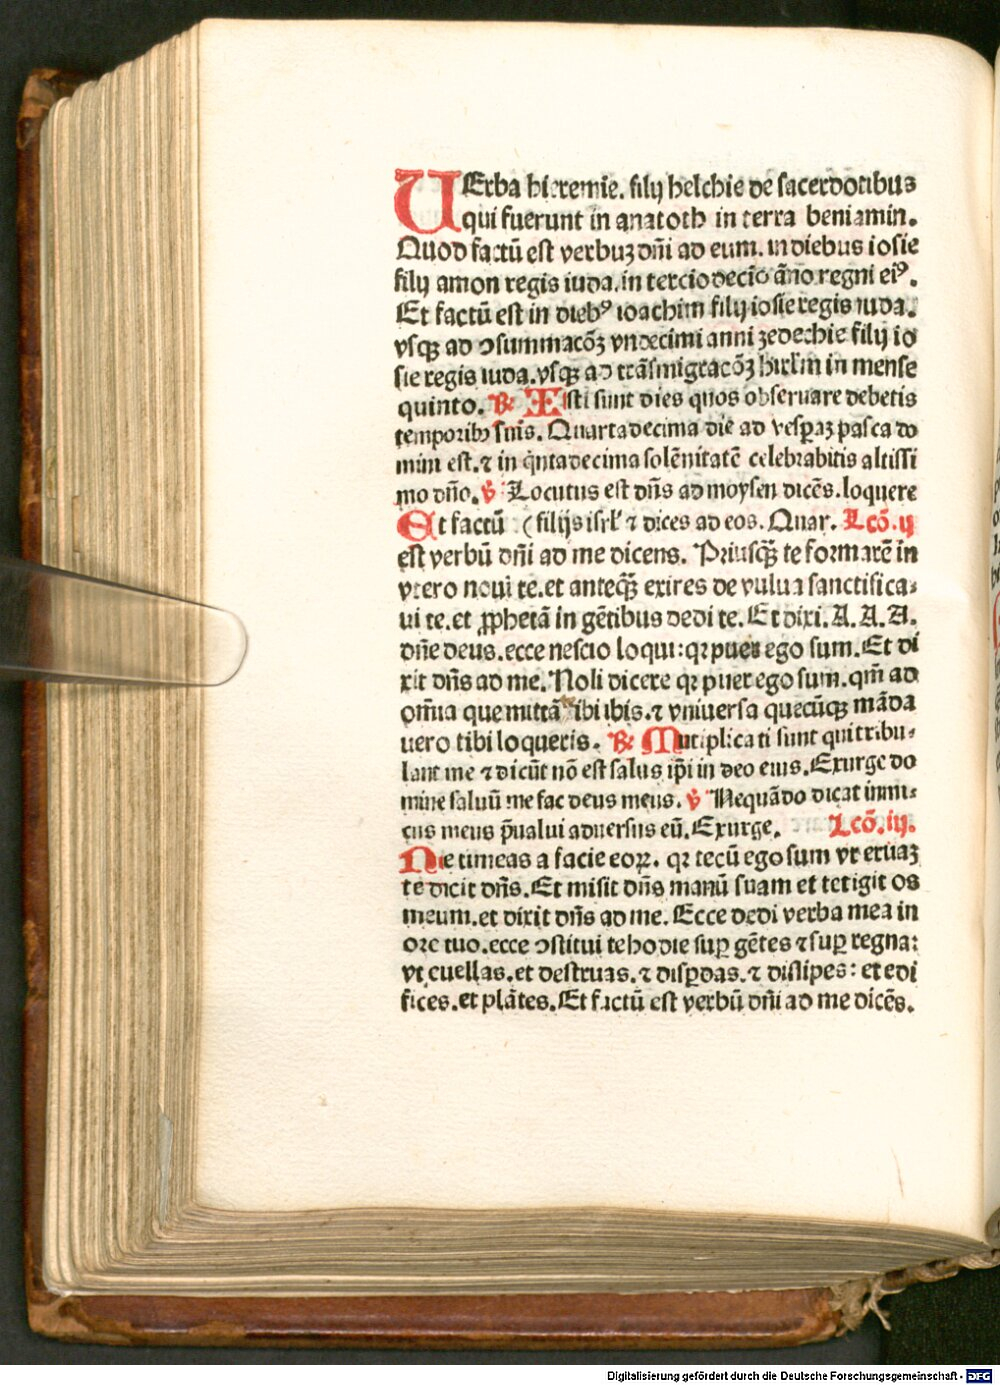 UErba hieremie. filij helchie de sacerdotibus
qui fuerunt in anatoth in terra beniamin.
Quod factū est verbuꝫ dn̄i ad eum. in diebus iosie
filij amon regis iuda. in tercio decīo āno regni eiꝰ.
Et factū est in diebꝰ ioachim filij iosie regis iuda.
vsqꝫ ad ↄsummacōꝫ vndecimi anni zedechie filij io
sie regis iuda. vsqꝫ ad trāsmigracōꝫ hirl̄m in mense
quinto. ℟ Isti sunt dies quos obseruare debetis
temporibꝫ suis. Quartadecima die ad vesꝑaꝫ pasca do
mini est. ⁊ in qͥntadecima solēnitatē celebrabitis altissi
mo dn̄o. ℣ Locutus est dn̄s ad moysen dicēs. loquere
Et factū ( filijs isrl̓ ⁊ dices ad eos. Quar. Lcō. ij
est verbū dn̄i ad me dicens. Priusqꝫ̄ te formarē in
vtero noui te. et anteqꝫ̄ exires de vulua sanctifica⸗
ui te. et ꝓphetā in gētibus dedi te. Et dixi. A. A. A.
dn̄e deus. ecce nescio loqui: qꝛ puer ego sum. Et di
xit dn̄s ad me. Noli dicere qꝛ puer ego sum. qm̄ ad
om̄ia que mittā tibi ibis. ⁊ vniuersa quecūqꝫ māda
uero tibi loqueris. ℟ Mutiplicati sunt qui tribu⸗
lant me ⁊ dicūt nō est salus ip̄i in deo eius. Exurge do
mine saluū me fac deus meus. ℣ Nequādo dicat inimi⸗
cus meus p̄ualui aduersus eū. Exurge. Lcō. iij.
Ne timeas a facie eoꝝ. qꝛ tecū ego sum vt eruaꝫ
te dicit dn̄s. Et misit dn̄s manū suam et tetigit os
meum. et dixit dn̄s ad me. Ecce dedi verba mea in
ore tuo. ecce ↄstitui te hodie suꝑ gētes ⁊ suꝑ regna:
vt euellas. et destruas. ⁊ disꝑdas. ⁊ dissipes: et edi
fices. et plātes. Et factū est verbū dn̄i ad me dicēs.
Digitalisierung gefördert durch die Deutsche Forschungsgemeinschaft - DFG